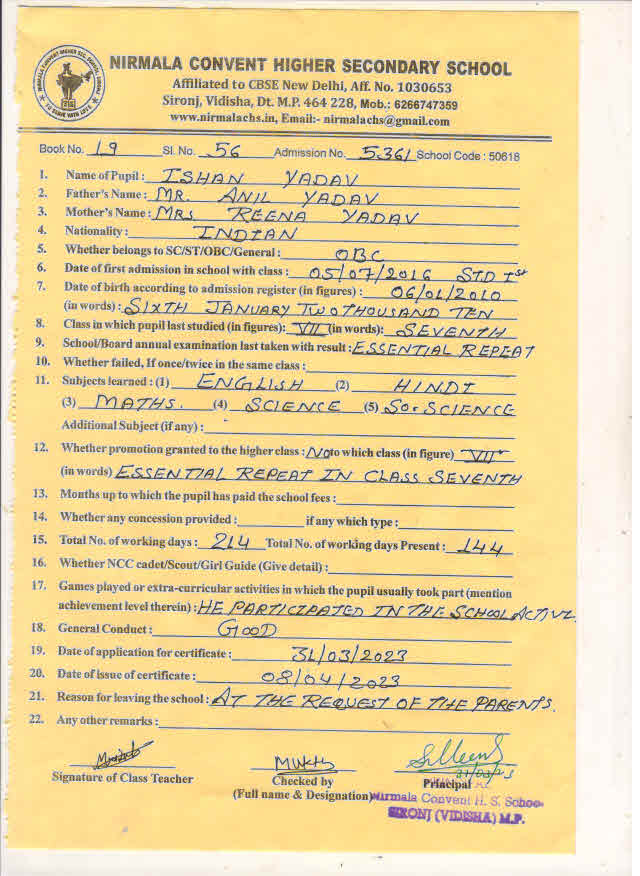 NIRMALA CONVENT HIGHER SECONDARY SCHOOL
Affiliated to CBSE New Delhi, Aff. No. 1030653
Sironj, Vidisha, Dt. M.P. 464 228, Mob.: 6266747359
www.nirmalachs.in, Email:- nirmalachs@gmail.com
Book No. 19 Sl. No. 56 Admission No. 5361 School Code : 50618
1. Name of Pupil : ISHAN YADAV
2. Father's Name : MR. ANIL YADAV
3. Mother's Name : MRS REENA YADAV
4. Nationality : INDIAN
5. Whether belongs to SC/ST/OBC/General : OBC
6. Date of first admission in school with class : 05/07/2016 STD Ist
7. Date of birth according to admission register (in figures) : 06/01/2010
(in words) : SIXTH JANUARY TWO THOUSAND TEN
8. Class in which pupil last studied (in figures): VII (in words): SEVENTH
9. School/Board annual examination last taken with result : ESSENTIAL REPEAT
10. Whether failed, If once/twice in the same class :
11. Subjects learned : (1) ENGLISH (2) HINDI
(3) MATHS. (4) SCIENCE (5) SO. SCIENCE
Additional Subject (if any) :
12. Whether promotion granted to the higher class : No to which class (in figure) VII
(in words) ESSENTIAL REPEAT IN CLASS SEVENTH
13. Months up to which the pupil has paid the school fees :
14. Whether any concession provided : if any which type :
15. Total No. of working days : 214 Total No. of working days Present : 144
16. Whether NCC cadet/Scout/Girl Guide (Give detail) :
17. Games played or extra-curricular activities in which the pupil usually took part (mention
achievement level therein) : HE PARTICIPATED IN THE SCHOOL
18. General Conduct : GOOD
19. Date of application for certificate : 31/03/2023
20. Date of issue of certificate : 08/04/2023
21. Reason for leaving the school : AT THE REQUEST OF THE PARENTS.
22. Any other remarks :
Signature of Class Teacher Checked by Principal
(Full name & Designation) Nirmala Convent H. S. School
SIRONJ (VIDISHA) M.P.